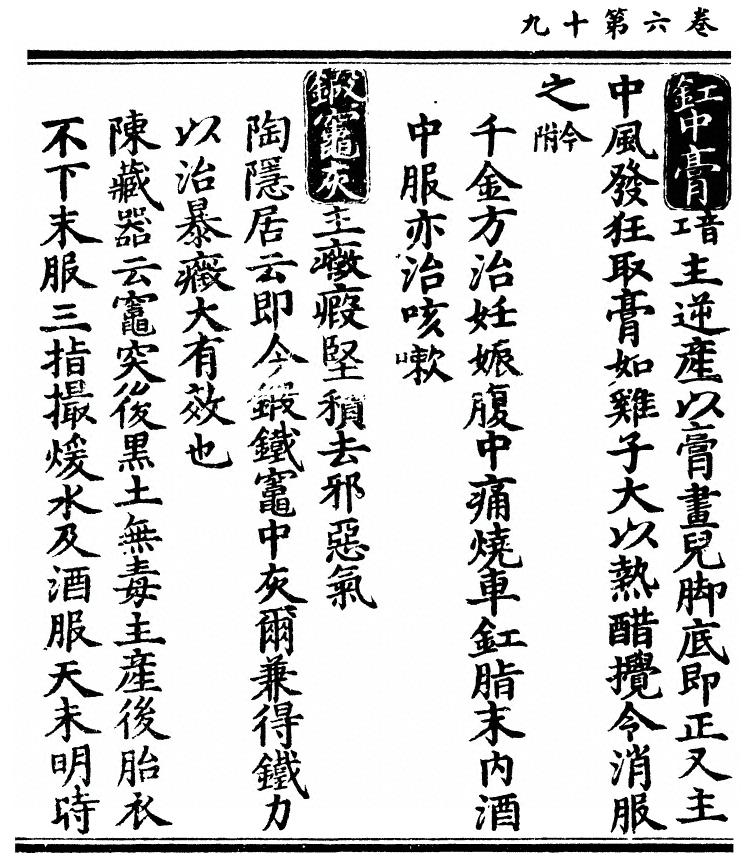 卷六第十九
釭中膏音工主逆產以膏畫兒脚底即正又主
中風發狂取膏如雞子大以熱醋攪令消服
之今附
千金方治妊娠腹中痛燒車釭脂末內酒
中服亦治咳嗽
鍛竈灰主癥瘕堅積去邪惡氣
陶隱居云即今鍛鐵竈中灰爾兼得鐵力
以治暴癥大有效也
陳藏器云竈突後黑土無毒主產後胎衣
不下末服三指撮煖水及酒服天未明時